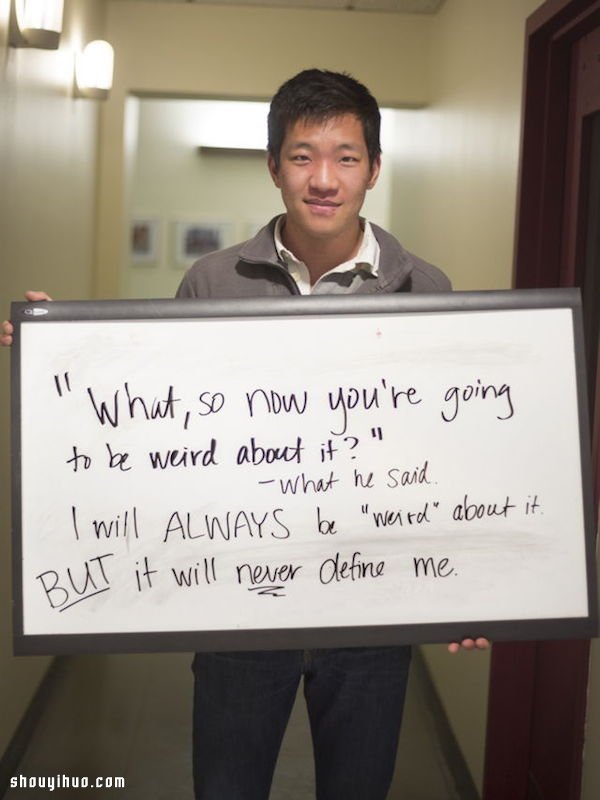 "What, so now you're going
to be weird about it?"
-what he said.
I will ALWAYS be "weird" about it.
BUT it will never define me.
shouyihuo.com